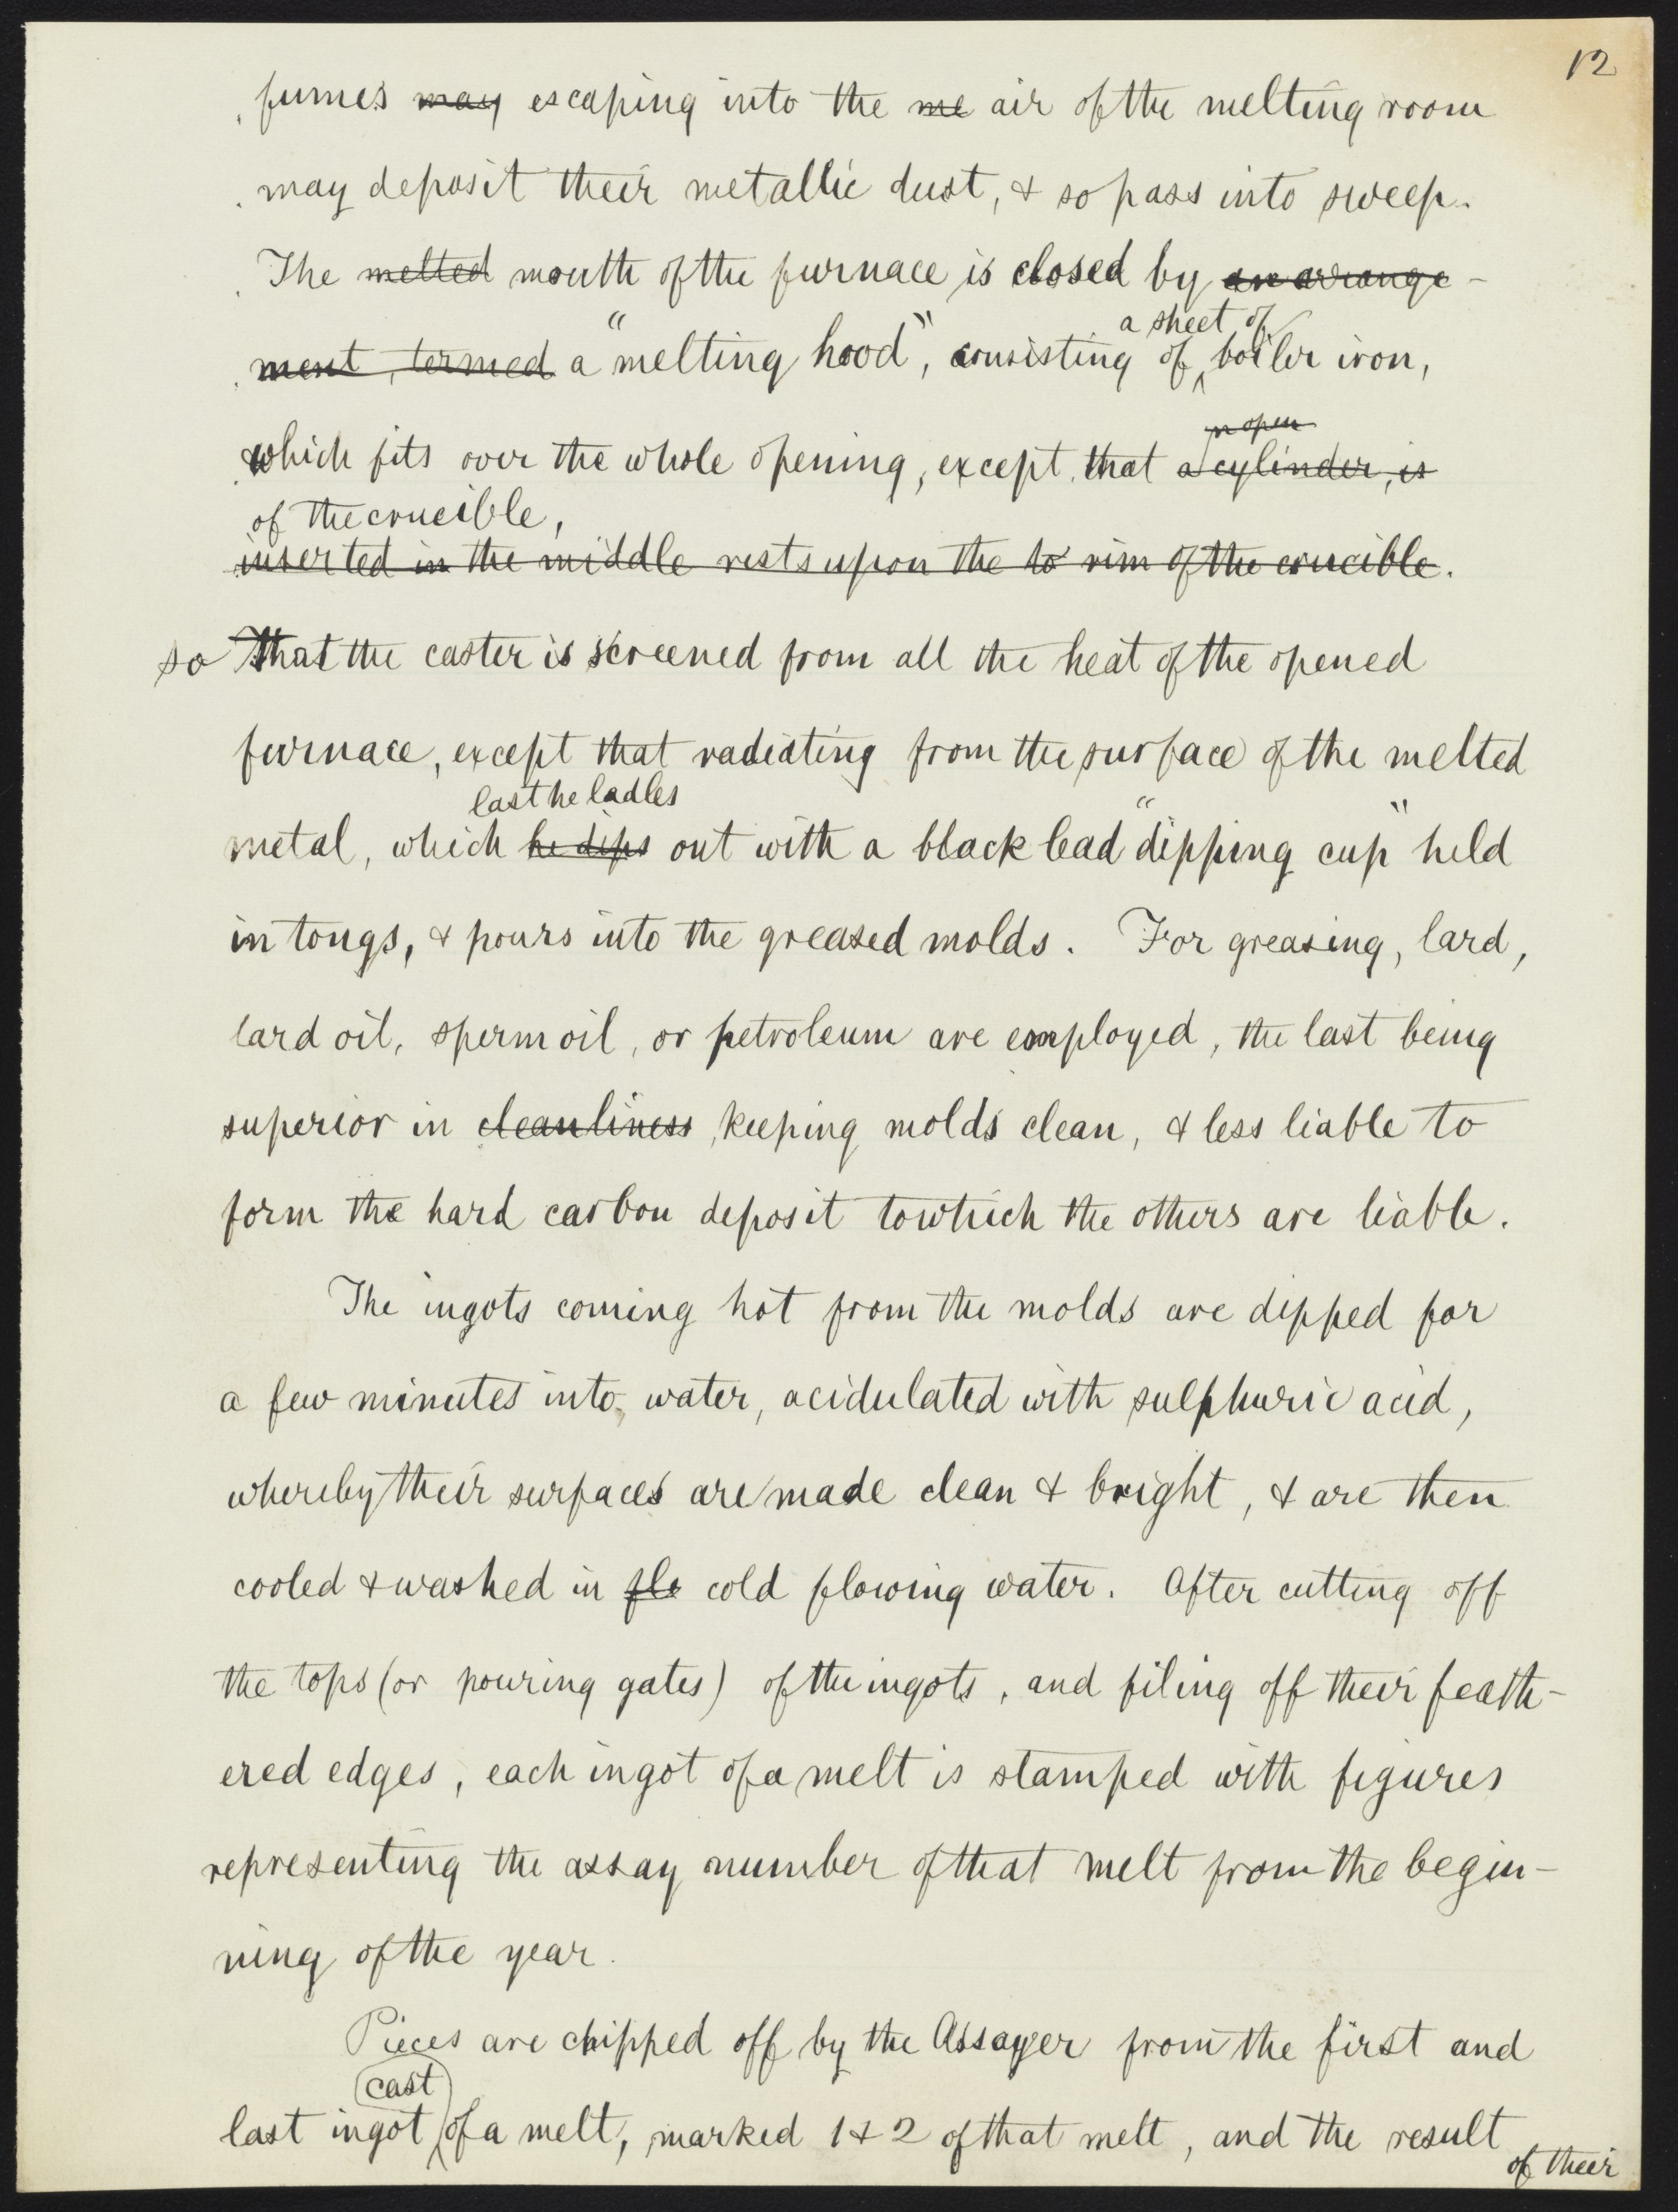 12
fumes may escaping into the me air of the melting room
may deposit their metallic dust, & so pass into sweep.
The melted mouth of the furnace is closed by an arrange-
a sheet of
ment, termed a "melting hood", consisting of boiler iron,
n open
which fits over the whole opening, except that a cylinder, is
of the crucible,
inserted in the middle rests upon the to rim of the crucible.
so that the caster is screened from all the heat of the opened
furnace, except that radiating from the surface of the melted
last he ladles
metal, which he dips out with a black lead "dipping cup" held
in tongs, & pours into the greased molds. For greasing, lard,
lard oil, sperm oil, or petroleum are employed, the last being
superior in cleanliness keeping molds clean, & less liable to
form the hard carbon deposit to which the others are liable.
The ingots coming hot from the molds are dipped for
a few minutes into water, acidulated with sulphuric acid,
whereby their surfaces are made clean & bright, & are then
cooled & washed in flo cold flowing water. After cutting off
the tops (or pouring gates) of the ingots, and filing off their feath-
ered edges, each ingot of a melt is stamped with figures
representing the assay number of that melt from the begin-
ning of the year.
Pieces are chipped off by the Assayer from the first and
cast
last ingot of a melt, marked 1 & 2 of that melt, and the result
of their